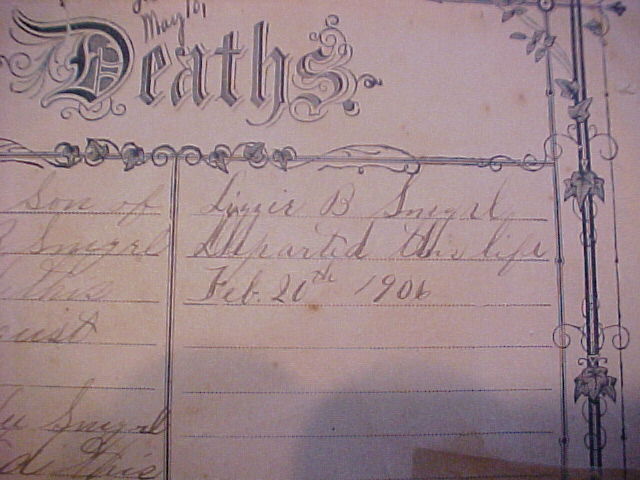 May 10,
Deaths.
Son of
Smyrl
this
ust
Smyrl
d this
Lizzie B Smyrl
Departed this life
Feb. 20th 1906